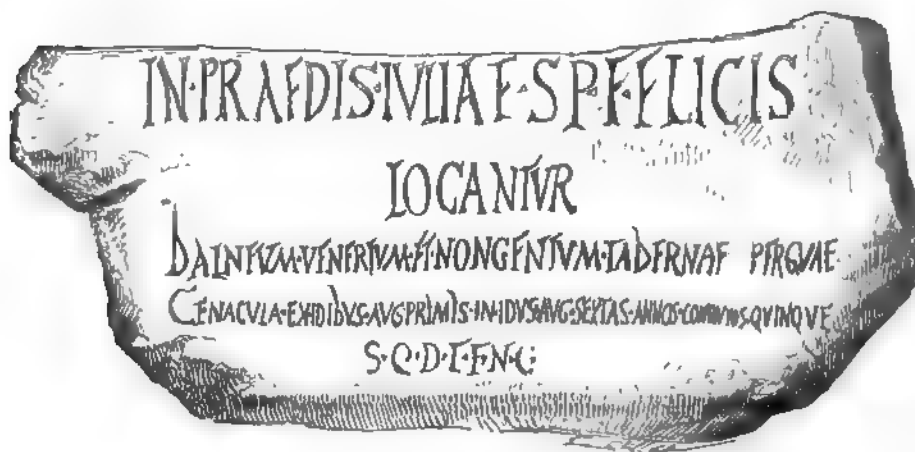 IN·PRAEDIS·IVLIAE·S P·F·FELICIS
LOCANTVR
BALNEVM·VENERIVM·ET·NONGENTVM·TABERNAE PERGVAE
CENACVLA·EX·IDIBVS·AVG·PRIMIS·IN·IDVS·AVG·SEXTAS·ANNOS·CONTINVOS·QVINQVE
S·Q·D·L·E·N·C·